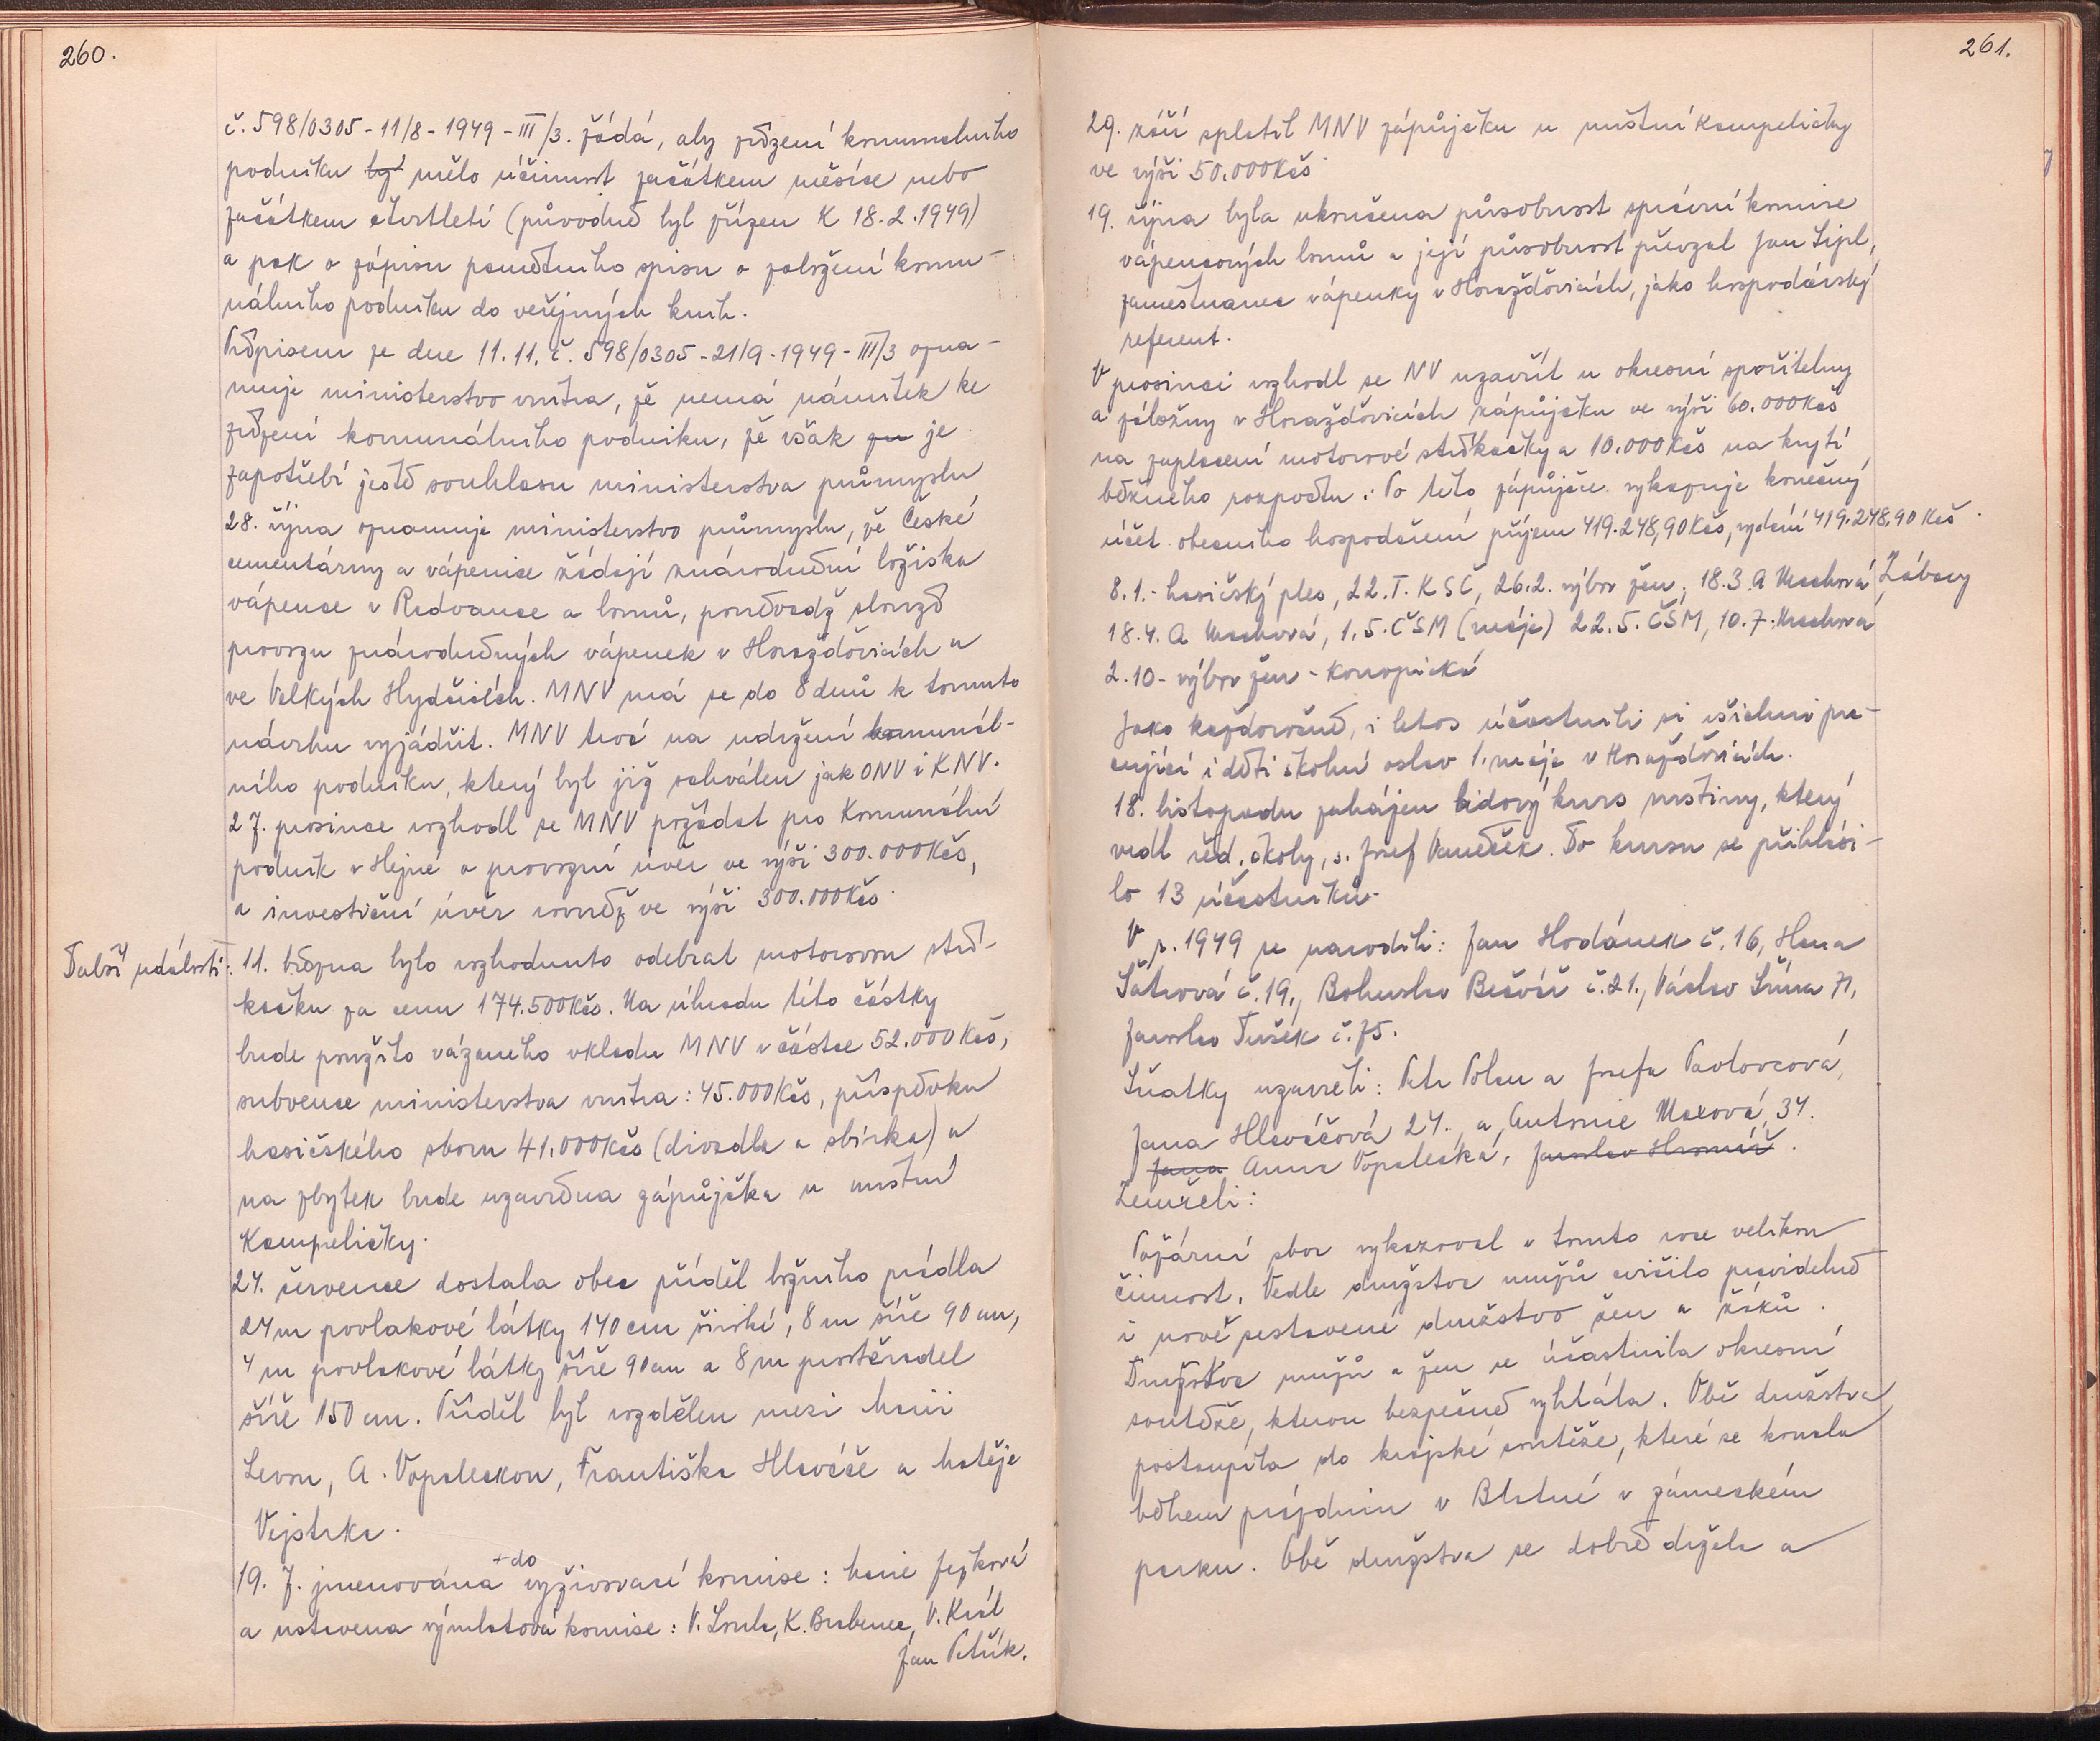 260.
č. 598/0305-11/8-1949-III/3. žádá, aby zřízení komunálního
podniku by mělo účinnost začátkem měsíce nebo
začátkem čtvrtletí (původně byl zřízen k 18.2.1949)
a pak o zápisu pamětního spisu o založení komu-
nálního podniku do veřejných knih.
Přípisem ze dne 11.11. č. 598/0305-21/9-1949-III/3 ozna-
muje ministerstvo vnitra, že nemá námitek ke
zřízení komunálního podniku, že však je
zapotřebí ještě souhlasu ministerstva průmyslu
28. října oznamuje ministerstvo průmyslu, že České
cementárny a vápenice žádají znárodnění ložiska
vápence v Radvance a lomů, poněvadž slouží
provozu znárodněných vápenek v Horažďovicích a
ve Velkých Hydčicích. MNV má se do 8 dnů k tomuto
návrhu vyjádřit. MNV trvá na udržení komunál-
ního podniku, který byl již schválen jak ONV i KNV.
27. prosince rozhodl se MNV požádat pro Komunální
podnik v Hejné o provozní úvěr ve výši 300.000Kčs,
a investiční úvěr rovněž ve výši 300.000Kčs.
Další události: 11. března bylo rozhodnuto odebrat motorovou stří-
kačku za cenu 174.500Kčs. Na úhradu této částky
bude použito vázaného vkladu MNV v částce 52.000Kčs,
subvence ministerstva vnitra: 45.000Kčs, příspěvku
hasičského sboru 41.000Kčs (divadla a sbírka) a
na zbytek bude uzavřena zápůjčka u místní
Kampeličky.
24. července dostala obec příděl ložního prádla
24m povlakové látky 140cm široké, 8m šíře 90cm,
4m povlakové látky šíře 90cm a 8m prostěradel
šíře 150cm. Příděl byl rozdělen mezi Marii
Levou, A. Vopaleckou, Františka Hlaváče a Matěje
Vejstrka.
+do
19. 7. jmenována vyživovací komise: Marie Jezková
a ustavena výmlatová komise: V. Loula, K. Brabenec, V. Král
Jan Petřík.
261.
29. září splatil MNV zápůjčku u místní Kampeličky
ve výši 50.000Kčs.
19. října byla ukončena působnost správní komise
vápencových lomů a její působnost převzal Jan Šipl,
zaměstnanec vápenky v Horažďovicích, jako hospodářský
referent.
V prosinci rozhodl se NV uzavřít u okresní spořitelny
a záložny v Horažďovicích zápůjčku ve výši 60.000Kčs
na zaplacení motorové stříkačky a 10.000Kčs na krytí
běžného rozpočtu. Po této zápůjčce vykazuje konečný
účet obecního hospodaření příjem 419.248,90Kčs, vydání 419.248,90Kčs.
8.1.- hasičský ples, 22.I. KSČ, 26.2. výbor žen, 18.3. A Machová, Zábavy
18.4. A Machová, 1.5. ČSM (máje) 22.5. ČSM, 10.7. Machová
2.10 - výbor žen - Konopická
Jako každoročně, i letos účastnili se všichni pra-
cující i děti školní oslav 1. máje v Horažďovicích.
18. listopadu zahájen lidový kurs ruštiny, který
vedl řed. školy, s. Josef Vaneček. Do kursu se přihlási-
lo 13 účastníků.
V r. 1949 se narodili: Jan Hodánek č. 16, Hana
Šatrová č. 19., Bohuslav Bečvář č. 21., Václav Šůna 71,
Jaroslav Dušek č. 75.
Sňatky uzavřeli: Petr Polan a Josefa Pavlovcová,
Jana Hlaváčová 24., a, Antonie Maxová, 34.
Jana Anna Vopalecká, Jaroslav Hromíř.
Zemřeli:
Požární sbor vykazoval v tomto roce velikou
činnost. Vedle družstva mužů cvičilo pravidelně
i nově sestavené družstvo žen a žáků.
Družstva mužů a žen se účastnila okresní
soutěže, kterou bezpečně vyhrála. Obě družstva
postoupila do krajské soutěže, která se konala
během prázdnin v Blatné v zámeckém
parku. Obě družstva se dobře držela a